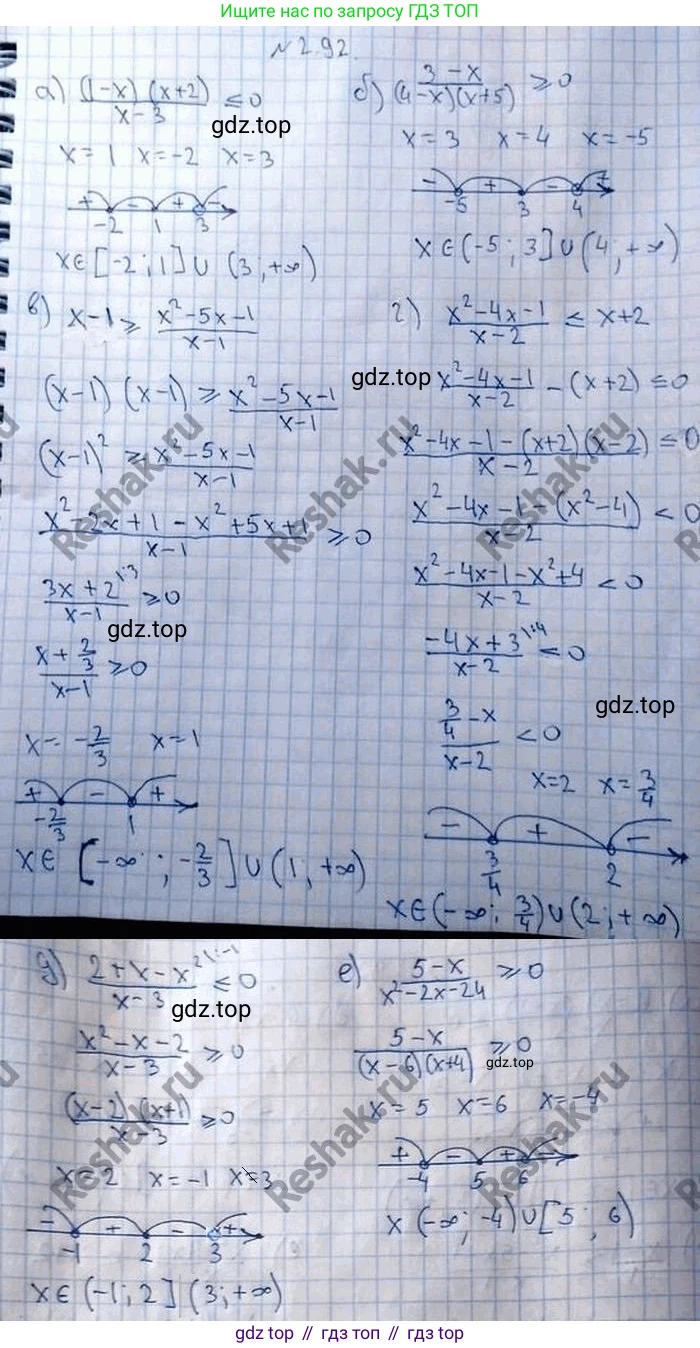 Ищите нас в поиске ГДЗ ТОП
№2.92.
а) (1-x)(x+2)/(x-3) ≤ 0
gdz.top
x=1 x=-2 x=3
+ - + -
-2 1 3
x∈[-2;1]∪(3;+∞)
б) (3-x)/((4-x)(x+5)) ≥ 0
x=3 x=4 x=-5
- + - +
-5 3 4
x∈(-5;3]∪(4;+∞)
в) x-1 ≥ (x²-5x-1)/(x-1)
(x-1)(x-1) ≥ (x²-5x-1)/(x-1)
(x-1)² ≥ (x²-5x-1)/(x-1)
(x²-2x+1-x²+5x+1)/(x-1) ≥ 0
(3x+2)/(x-1) ≥ 0 |:3
gdz.top
(x+2/3)/(x-1) ≥ 0
x=-2/3 x=1
+ - +
-2/3 1
x∈[-∞;-2/3]∪(1;+∞)
г) (x²-4x-1)/(x-2) ≤ x+2
gdz.top
(x²-4x-1)/(x-2) - (x+2) ≤ 0
(x²-4x-1-(x+2)(x-2))/(x-2) ≤ 0
(x²-4x-1-(x²-4))/(x-2) < 0
(x²-4x-1-x²+4)/(x-2) < 0
(-4x+3)/(x-2) < 0 |:4
gdz.top
(3/4-x)/(x-2) < 0
x=2 x=3/4
- + -
3/4 2
x∈(-∞;3/4)∪(2;+∞)
д) (2+x-x²)/(x-3) ≤ 0 |:-1
gdz.top
(x²-x-2)/(x-3) ≥ 0
(x-2)(x+1)/(x-3) ≥ 0
x=2 x=-1 x=3
- + - +
-1 2 3
x∈(-1;2](3;+∞)
е) (5-x)/(x²-2x-24) ≥ 0
(5-x)/((x-6)(x+4)) ≥ 0
gdz.top
x=5 x=6 x=-4
+ - + -
-4 5 6
x(-∞;-4)∪[5;6)
Reshak.ru
Reshak.ru
Reshak.ru
Reshak.ru
gdz.top // гдз топ // gdz.top